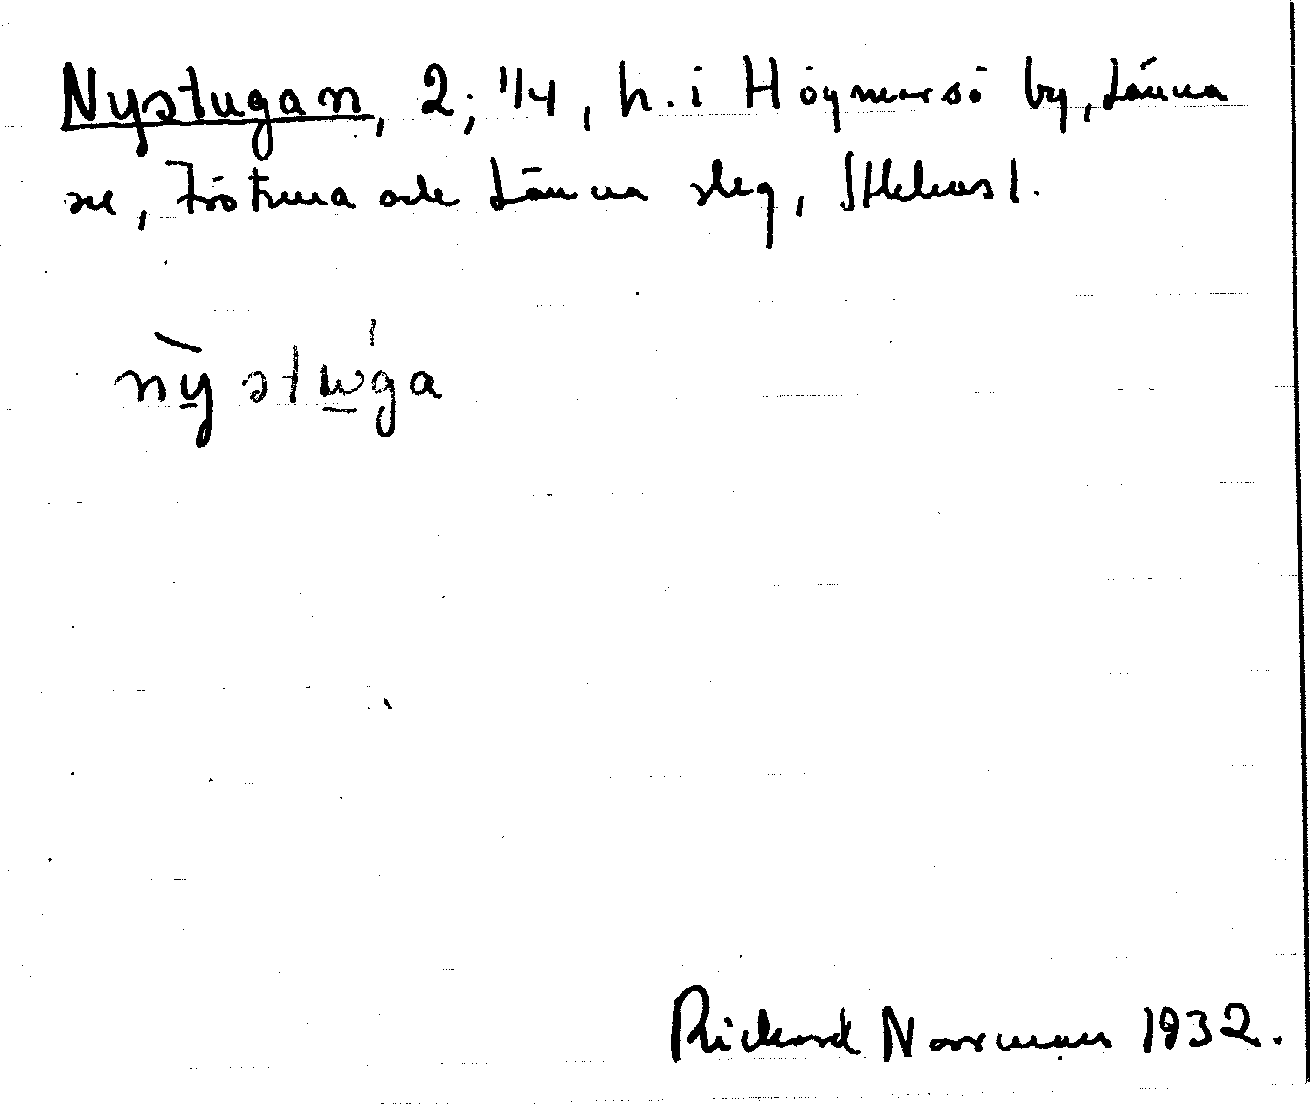 Nystugan, 2; 1/4, h. i Högmarsö by, Länna
sn, Frötuna och Länna slg, Sthlms l.
nỳstẃga
Rickard Norrman 1932.